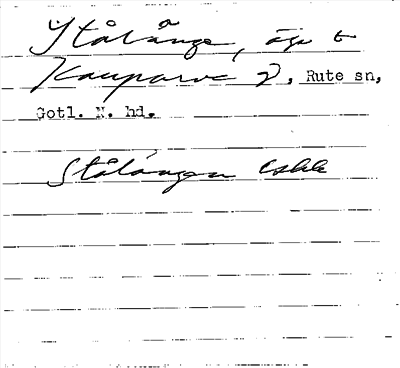 Ystålänge, äga t
Kauparve 2, Rute sn,
Gotl. N. hd.
Stålängen